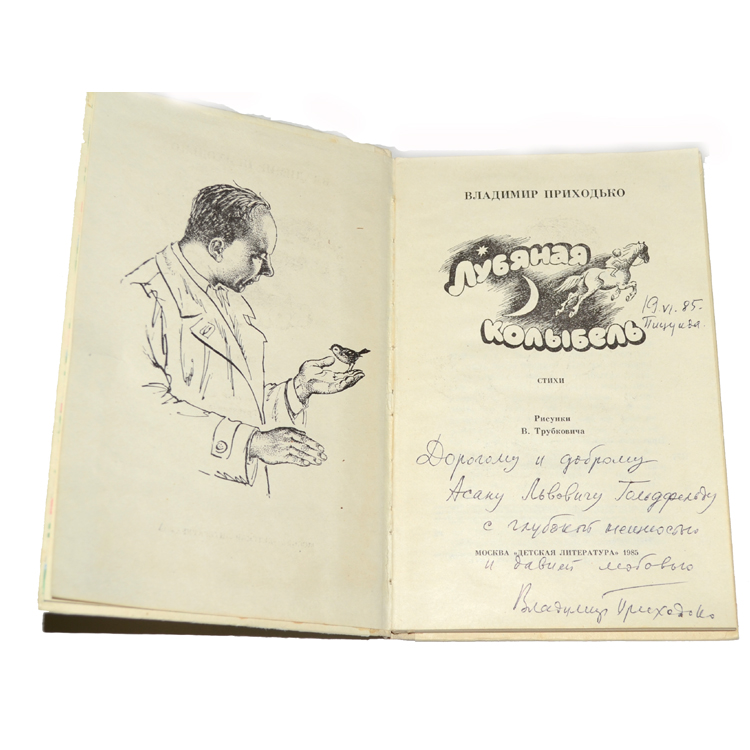 ВЛАДИМИР ПРИХОДЬКО
ЛУБЯНАЯ
КОЛЫБЕЛЬ
19.VI.85.
Пицунда.
СТИХИ
Рисунки
В. Трубковича
Дорогому и доброму
Асану Львовичу Гольдфельду
с глубокой нежностью
МОСКВА «ДЕТСКАЯ ЛИТЕРАТУРА» 1985
и давней любовью
Владимир Приходько